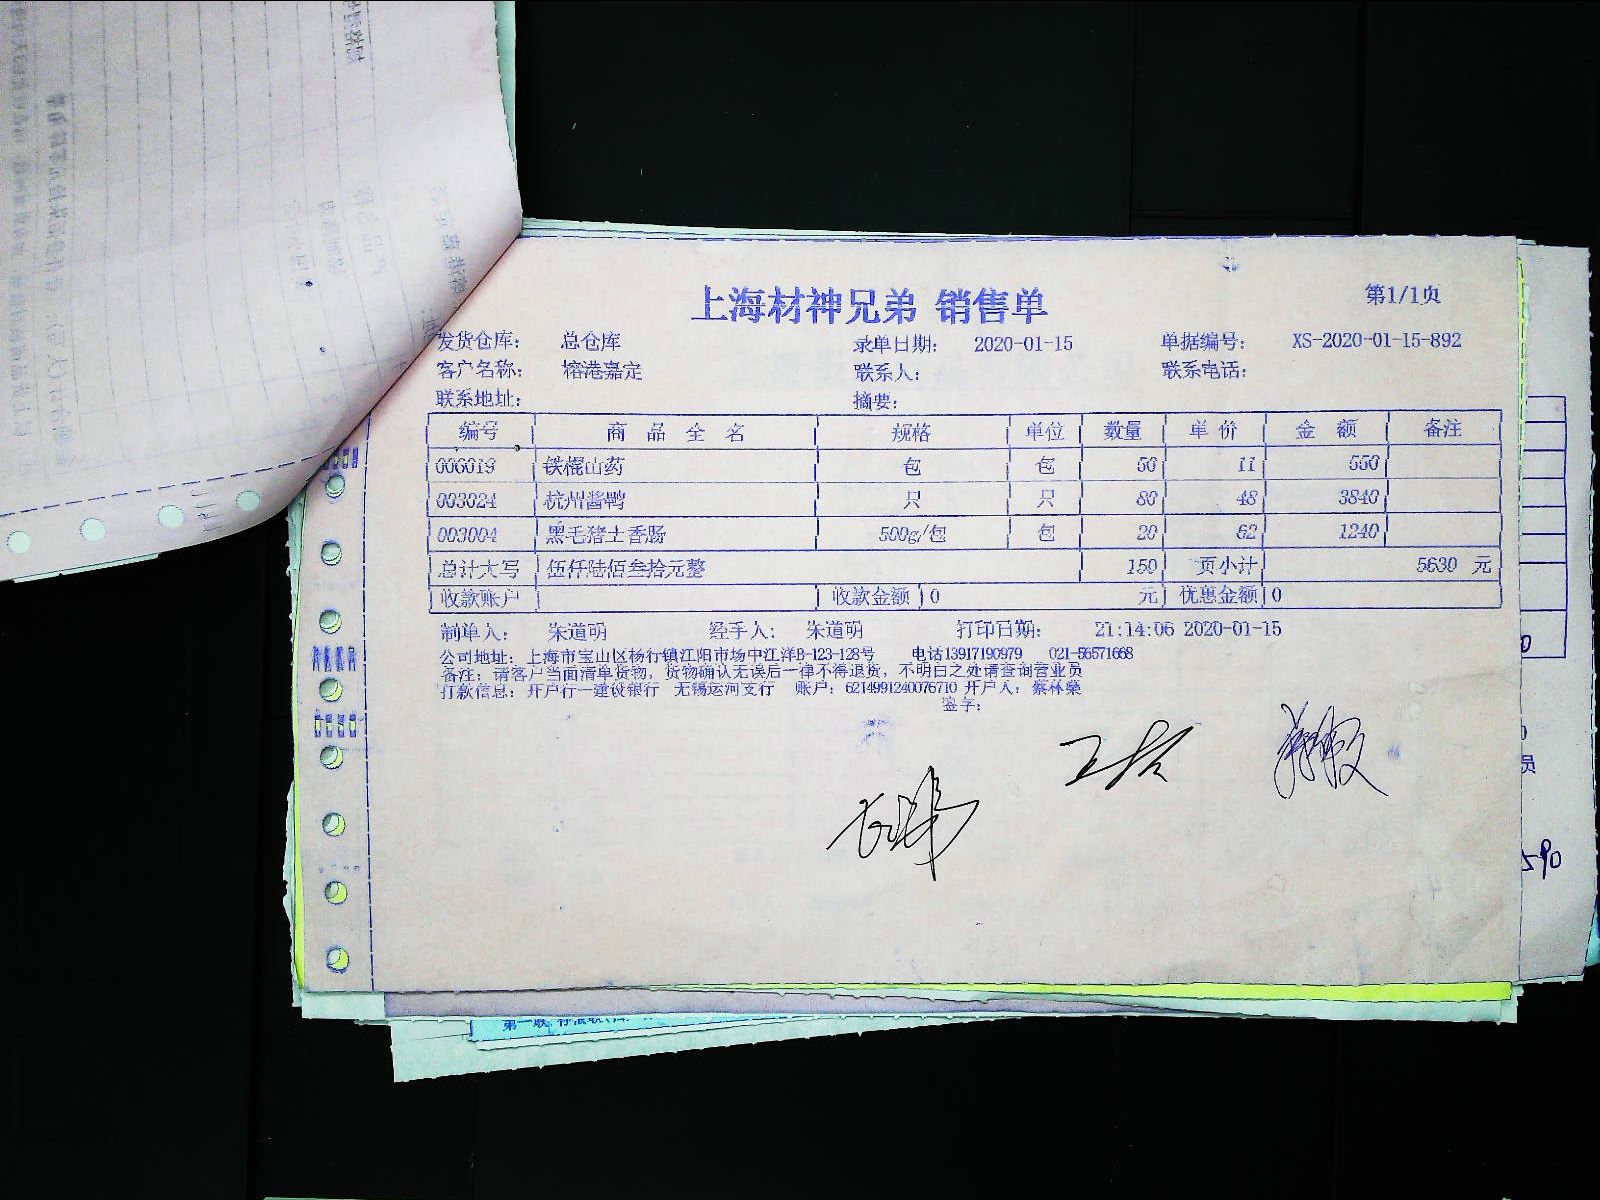 上海材神兄弟 销售单
第1/1页
发货仓库: 总仓库 录单日期: 2020-01-15 单据编号: XS-2020-01-15-892
客户名称: 榕港嘉定 联系人: 联系电话:
联系地址: 摘要:
编号 商品全名 规格 单位 数量 单价 金额 备注
006019 铁棍山药 包 包 50 11 550
003024 杭州酱鸭 只 只 80 48 3840
003004 黑毛猪土香肠 500g/包 包 20 62 1240
总计大写 伍仟陆佰叁拾元整 150 页小计 5630 元
收款账户 收款金额 0 元 优惠金额 0
制单人: 朱道明 经手人: 朱道明 打印日期: 21:14:06 2020-01-15
公司地址: 上海市宝山区杨行镇江阳市场中江洋B-123-128号 电话13917190979 021-56571668
备注: 请客户当面清单货物, 货物确认无误后一律不得退货, 不明白之处请查询营业员
打款信息: 开户行一建设银行 无锡运河支行 账户: 6214991240076710 开户人: 蔡林燊
签字:
员
590